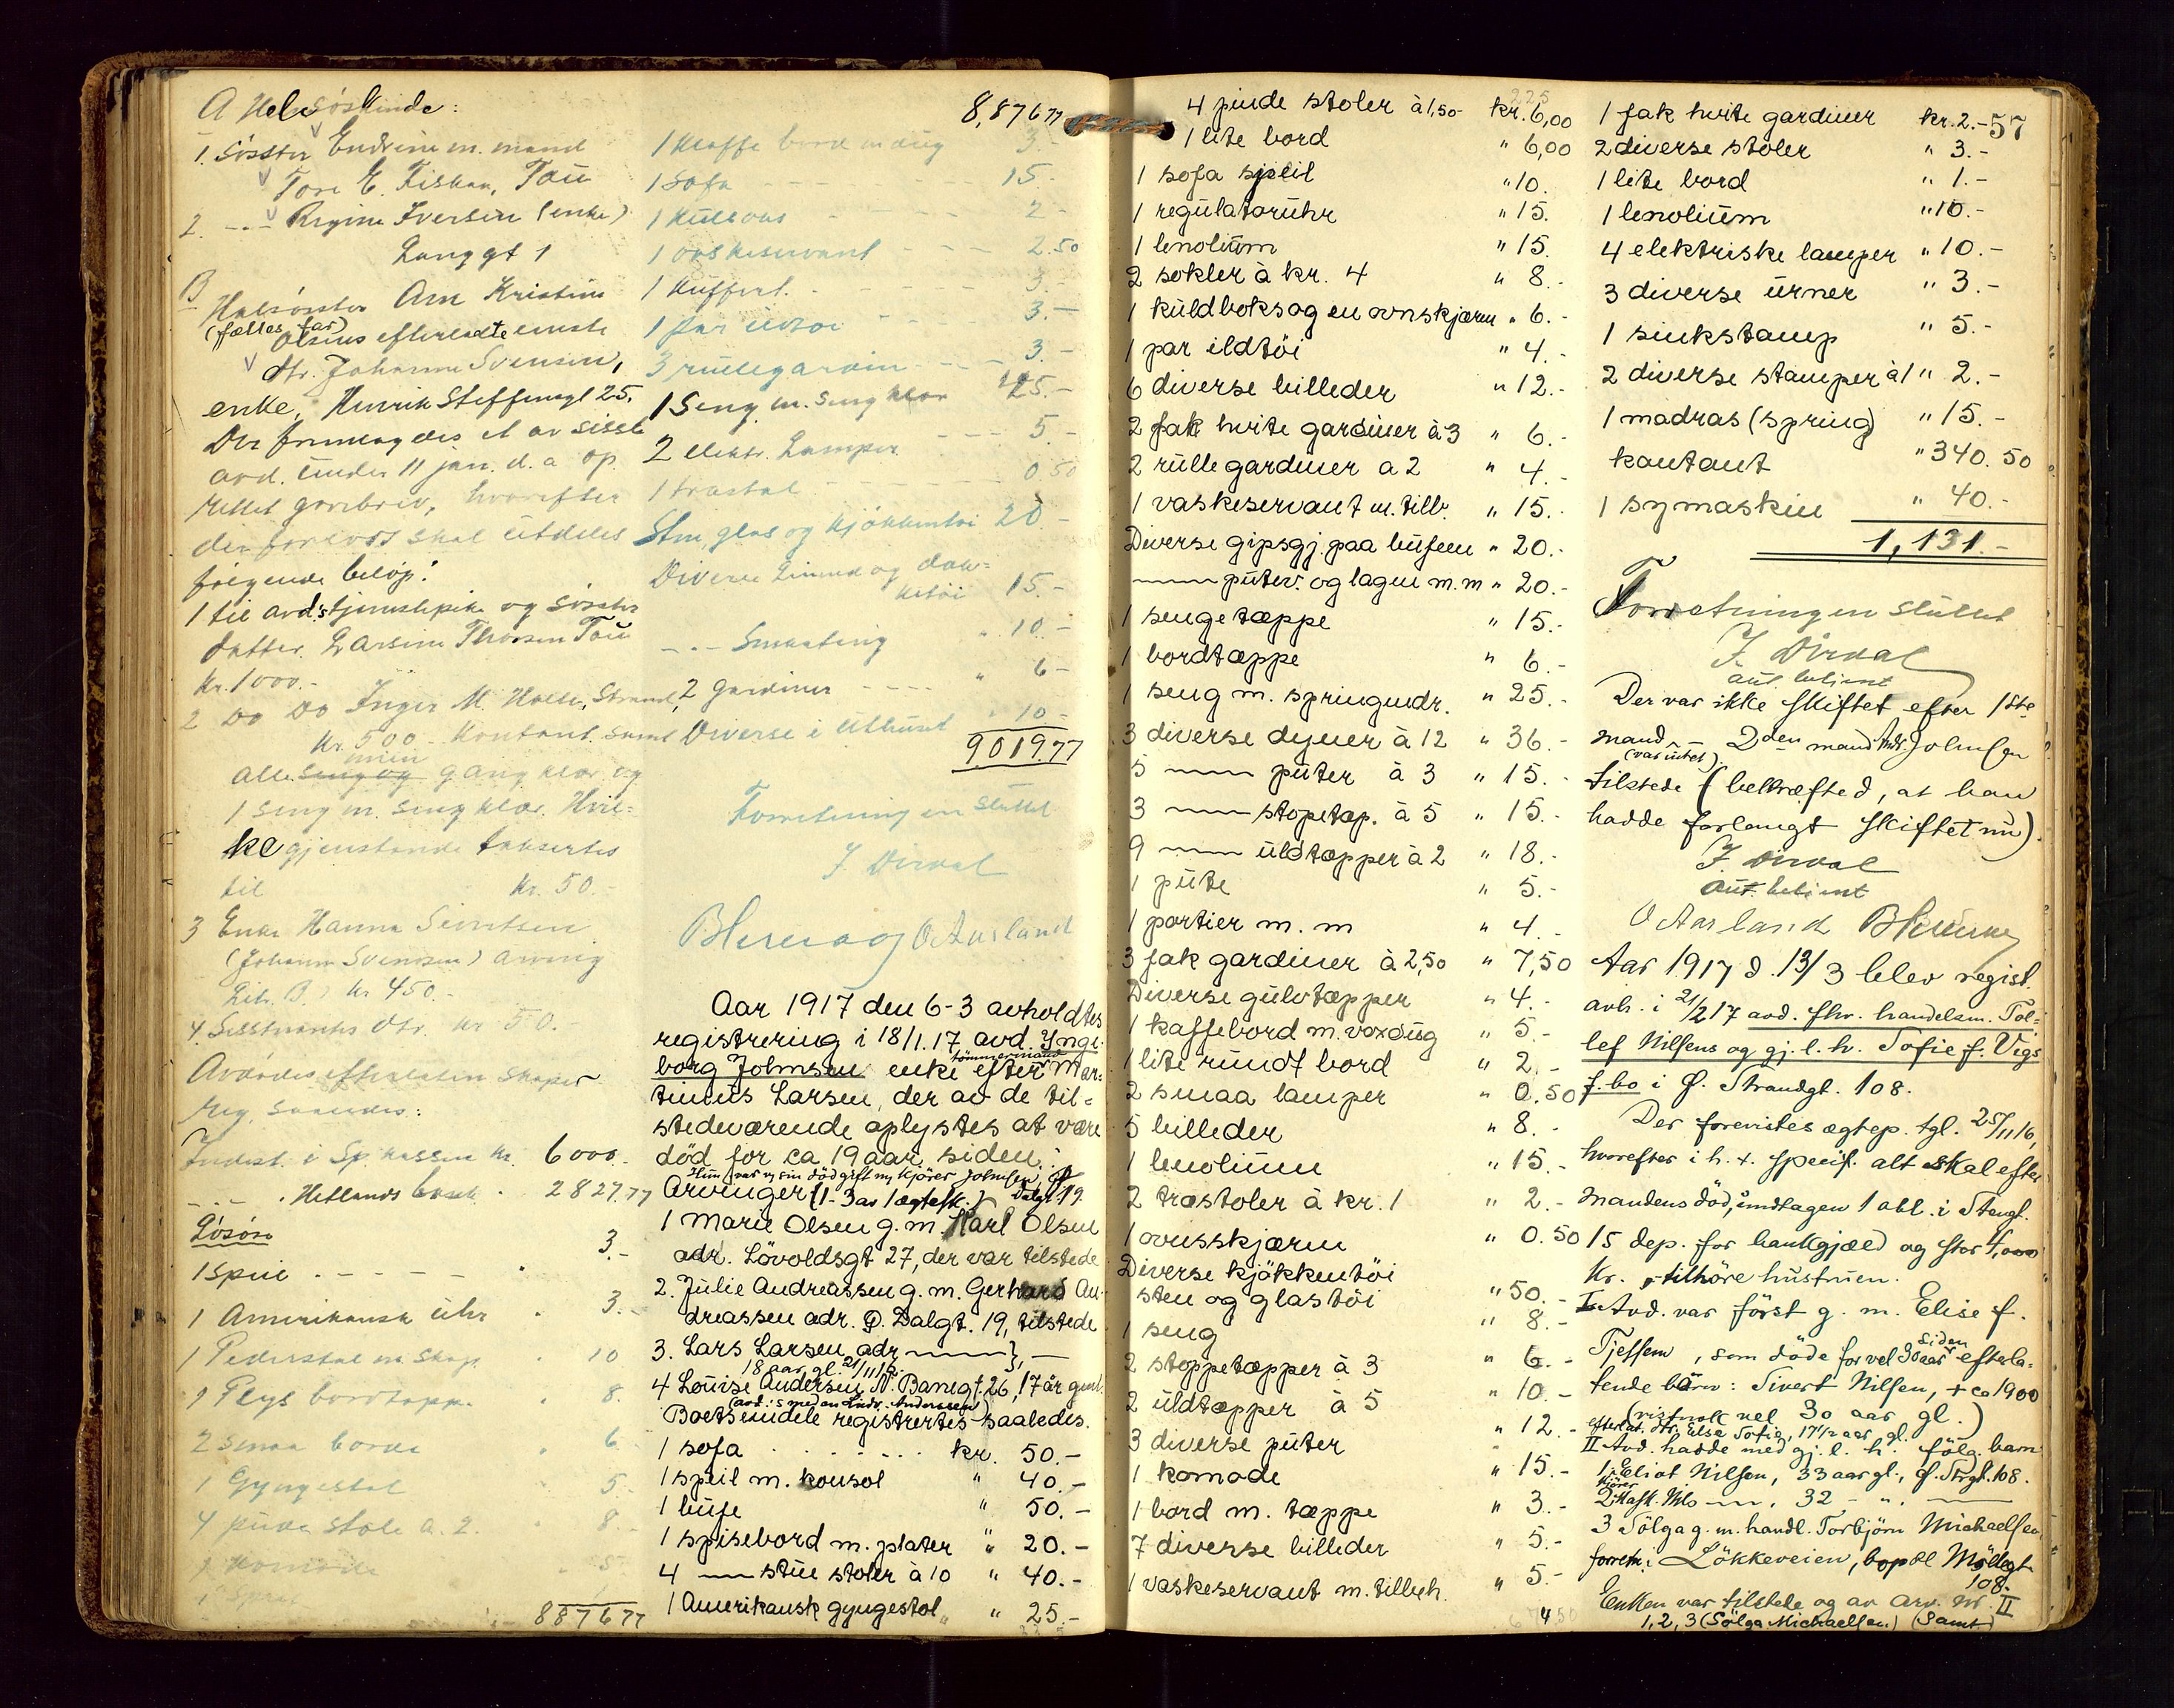 A Helsöskende:
1. Söster Endrine m. mand
Tore E. Fiskaa, Tau
2. -.- Regine Iversen (enke)
Langgt 1
B
Halvsöster Ane Kristine
(fælles far)
Olsens efterladte eneste
dtr. Johanne Svensen,
enke, Henrik Steffensgt 25.
Der fremlagdes et av sidste
avd. under 11 jan. d. a. op
rettet gavebrev, hvorefter
der forlods skal utdeles
følgende beløp:
1 til avd's tjenestepike og söster
datter Larsine Thorsen Tau
Kr. 1000.-
2 Do Do Inger M. Holta, Strand,
Kr. 500.- kontant samt
alle mine seng og gangklær og
1 seng m. sengklær. Hvil=
ke gjenstande takseres
til kr. 50.-
3 Enke Hanna Sivertsen
(Johanne Svensen) arving
Litr. B.) kr 450.-
4. Sidstnævntes dtr. kr 50.-
Avdödes efterladenskaper
reg. saaledes:
Indest. i Sp. kassen kr. 6000.-
-.- . Hetlands bank . 2827.77
Lösöre
1 speil . - - - - . 3.-
1 Amerikansk uhr . 3.-
1 Pederstal m. skap . 10
1 Plys bordtæppe . 8.
2 smaa borde . 6
1 Gyngestol . 5
4 pinde stole a. 2. . 8.-
1 Komode . 5
1 speil
8876 77
8,876 77
1 Kaffe bord m dug 3.-
1 Sofa - - - 15.-
1 Kulboks - - - 2 -
1 vaskeservant - - - 2.50
1 Kuffert. - - - 3.-
1 par ildtöi - - 3.-
3 rullegardin - - - 3.-
1 Seng m. sengklær 25.-
2 elektr. Lamper - - - 5.-
1 træstol - - - 0.50
Sten, glas og kjökkentöi 20.-
Diverse Linned og dæk=
ketöi 15.-
-.- Smaating " 10.-
2 Gardiner - - - - " 6 -
Diverse i uthuset " 10 -
9019.77
Forretningen sluttet
J. Dirdal
B Hereaog O Aarland
Aar 1917 den 6-3 avholdtes
registrering i 18/1.17 avd. Inge
borg Johnsen enke efter tömmermand Mar=
tinius Larsen, der av de til=
stedeværende oplystes at være
död for ca 19 aar siden.
Hun var v. sin död gift m. kjörer Johnsen, Ø. Dalgt. 19
Arvinger (1-3 av 1 ægtesk.)
1 Marie Olsen g. m. Karl Olsen
adr. Lövoldsgt 27, der var tilstede
2. Julie Andreassen g. m. Gerhard An
dreassen adr. Ø. Dalgt. 19, tilstede
3. Lars Larsen adr —"— }, —
18 aar gl. 21/11 16.
4 Louise Andersen N. Banegt. 26, 17 år gml.
(avd.'s med en Andr. Anderssen)
Boets eiendele registrertes saaledes.
1 sofa . . . . . . . kr. 50.-
1 speil m. konsol " 40.-
1 bufe " 50.-
1 spisebord m. plater " 20.-
4 —"— stue stoler à 10 " 40.-
1 Amerikansk gyngestol " 25.-
225
4 pinde stoler à 1,50- kr. 6,00
1 lite bord " 6,00
1 sofa speil " 10.
1 regulatoruhr " 15.
1 lenolium " 15.
2 sokler à kr. 4 " 8.-
1 kuldboks og en ovnskjærm " 6.-
1 par ildtöi " 4.-
6 diverse billeder " 12.-
2 fak hvite gardiner à 3 " 6.-
2 rullegardiner a 2 " 4.-
1 vaskeservant m. tillb. " 15.-
Diverse gipsgj. paa bufeen " 20.-
—"— putev. og lagen m.m " 20.-
1 sengetæppe " 15.-
1 bordtæppe " 6.-
1 seng m. springmdr. " 25.-
3 diverse dyner à 12 " 36.-
5 —"— puter à 3 " 15.-
3 —"— stopetæp. à 5 " 15.-
9 —"— uldtæpper à 2 " 18.-
1 pute " 5.-
1 portier m. m " 4.-
3 fak gardiner à 2,50 " 7,50
Diverse gulvtæpper " 4.-
1 kaffebord m. voxdug " 5.-
1 lite rundt bord " 2.-
2 smaa lamper " 0.50
5 billeder " 8.-
1 lenolium " 15.-
2 træstoler à kr. 1 " 2.-
1 ovnsskjærm " 0.50
Diverse kjökkentöi
sten og glastöi " 50.-
1 seng " 8.-
2 stoppetæpper à 3 " 6.-
2 uldtæpper à 5 " 10.-
3 diverse puter " 12.-
1 komode " 15.-
1 bord m. tæppe " 3.-
7 diverse billeder " 5.-
1 vaskeservant m. tilbeh. " 5.-
57
1 fak hvite gardiner kr. 2.-
2 diverse stoler " 3.-
1 lite bord " 1.-
1 lenolium " 10.-
4 elektriske lamper " 10.-
3 diverse urner " 3.-
1 sinkstamp " 5.-
2 diverse stamper à 1 " 2.-
1 madras (spring) " 15.-
kontant " 340.50
1 symaskin " 40.-
1,131.-
Forretningen sluttet
J. Dirdal
aut. betjent
Der var ikke skiftet efter 1ste
mand (var intet) - 2den mand Andr. Johnsen
tilstede (bekræfted, at han
hadde forlangt skiftet nu).
J. Dirdal
aut. betjent
O Aarland B Hereaog
Aar 1917 d. 13/3 blev regist.
avh. i 21/2 17 avd. fhv. handelsm. Tol=
lef Nilsens og gj. l. h. Sofie f. Vigs
f. bo i Ø. Strandgt. 108.
Der forevistes ægtep. tgl. 25/11 16,
hvorefter i h. t. specif. alt skal efter
mandens död, undtagen 1 obl. i Stavgf.
15 dep. for bankgjæld og stor 4,000
Kr. tilhöre hustruen.
I Avd. var först g. m. Elise f.
Tjessem, som döde for vel 30 aar siden efterla=
tende börn: Sivert Nilsen, + ca 1900
(vistnok vel 30 aar gl.)
efterlat. dtr. Elsa Sofie, 17½ aar gl.
II Avd. hadde med gj. l. h. fölg. barn
1. Eliot Nilsen, 33 aar gl., Ø. Strgt. 108.
2 Kjörer Mask. Nils —"—, 32 - " -
3 Sölga g. m. handl. Torbjörn Michaelsen
forretn. i Lökkeveien, bopæl Möllegt.
108.
Enken var tilstede og av Arv. Nr. II
1, 2, 3 (Sölga Michaelsen) (Samt)